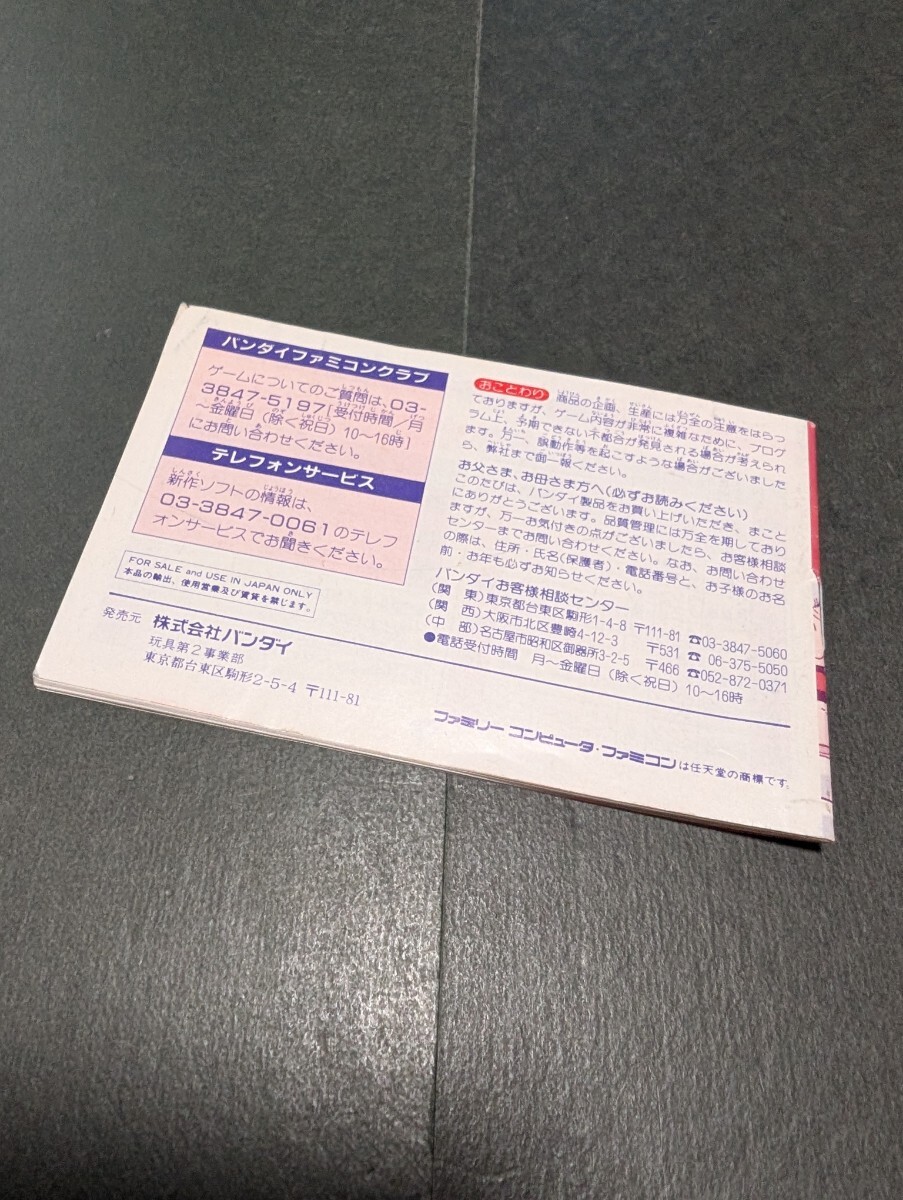 バンダイファミコンクラブ
ゲームについてのご質問は、03-
3847-5197[受付時間/月
〜金曜日(除く祝日)10〜16時]
にお問い合わせください。
テレフォンサービス
新作ソフトの情報は、
03-3847-0061のテレフ
ォンサービスでお聞きください。
FOR SALE and USE IN JAPAN ONLY
本品の輸出、使用営業及び賃貸を禁じます。
発売元 株式会社バンダイ
玩具第2事業部
東京都台東区駒形2-5-4 〒111-81
おことわり 商品の企画、生産には万全の注意をはらっ
ておりますが、ゲーム内容が非常に複雑なために、プログ
ラム上、予期できない不都合が発見される場合が考えられ
ます。万一、誤動作等を起こすような場合がございました
ら、弊社まで御一報ください。
お父さま、お母さま方へ(必ずお読みください)
このたびは、バンダイ製品をお買い上げいただき、まこと
にありがとうございます。品質管理には万全を期しており
ますが、万一お気付きの点がございましたら、お客様相談
センターまでお問い合わせください。なお、お問い合わせ
の際は、住所・氏名(保護者)・電話番号と、お子様のお名
前・お年も必ずお知らせください。
バンダイお客様相談センター
(関 東)東京都台東区駒形1-4-8 〒111-81 ☎03-3847-5060
(関 西)大阪市北区豊崎4-12-3 〒531 ☎06-375-5050
(中 部)名古屋市昭和区御器所3-2-5 〒466 ☎052-872-0371
●電話受付時間 月〜金曜日(除く祝日)10〜16時
ファミリーコンピュータ・ファミコンは任天堂の商標です。